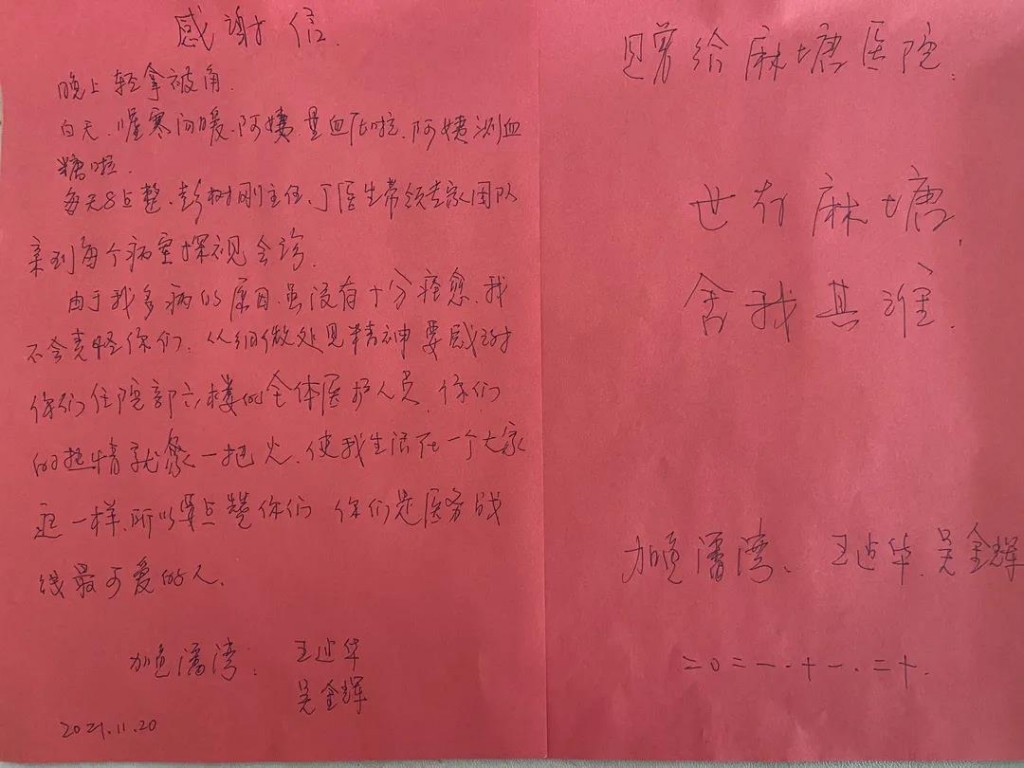 感谢信.
晚上轻拿被角.
白天.嘘寒问暖.阿姨量血压啦.阿姨测血
糖啦.
每天8点整.彭树刚主任.丁医生带领专家团队
亲到每个病室探视会诊.
由于我多病的原因.虽没有十分痊愈.我
不会责怪你们.从细微处见精神要感谢
你们住院部六楼的全体医护人员.你们
的热情就象一把火.使我生活在一个大家
庭一样.所以要点赞你们 你们是医务战
线最可爱的人.
潘湾. 王 华
吴金辉
2021.11.20
给麻塘医院.
世有麻塘,
舍我其谁.
潘湾. 王 华.吴金辉
二0二一.十一.二十.